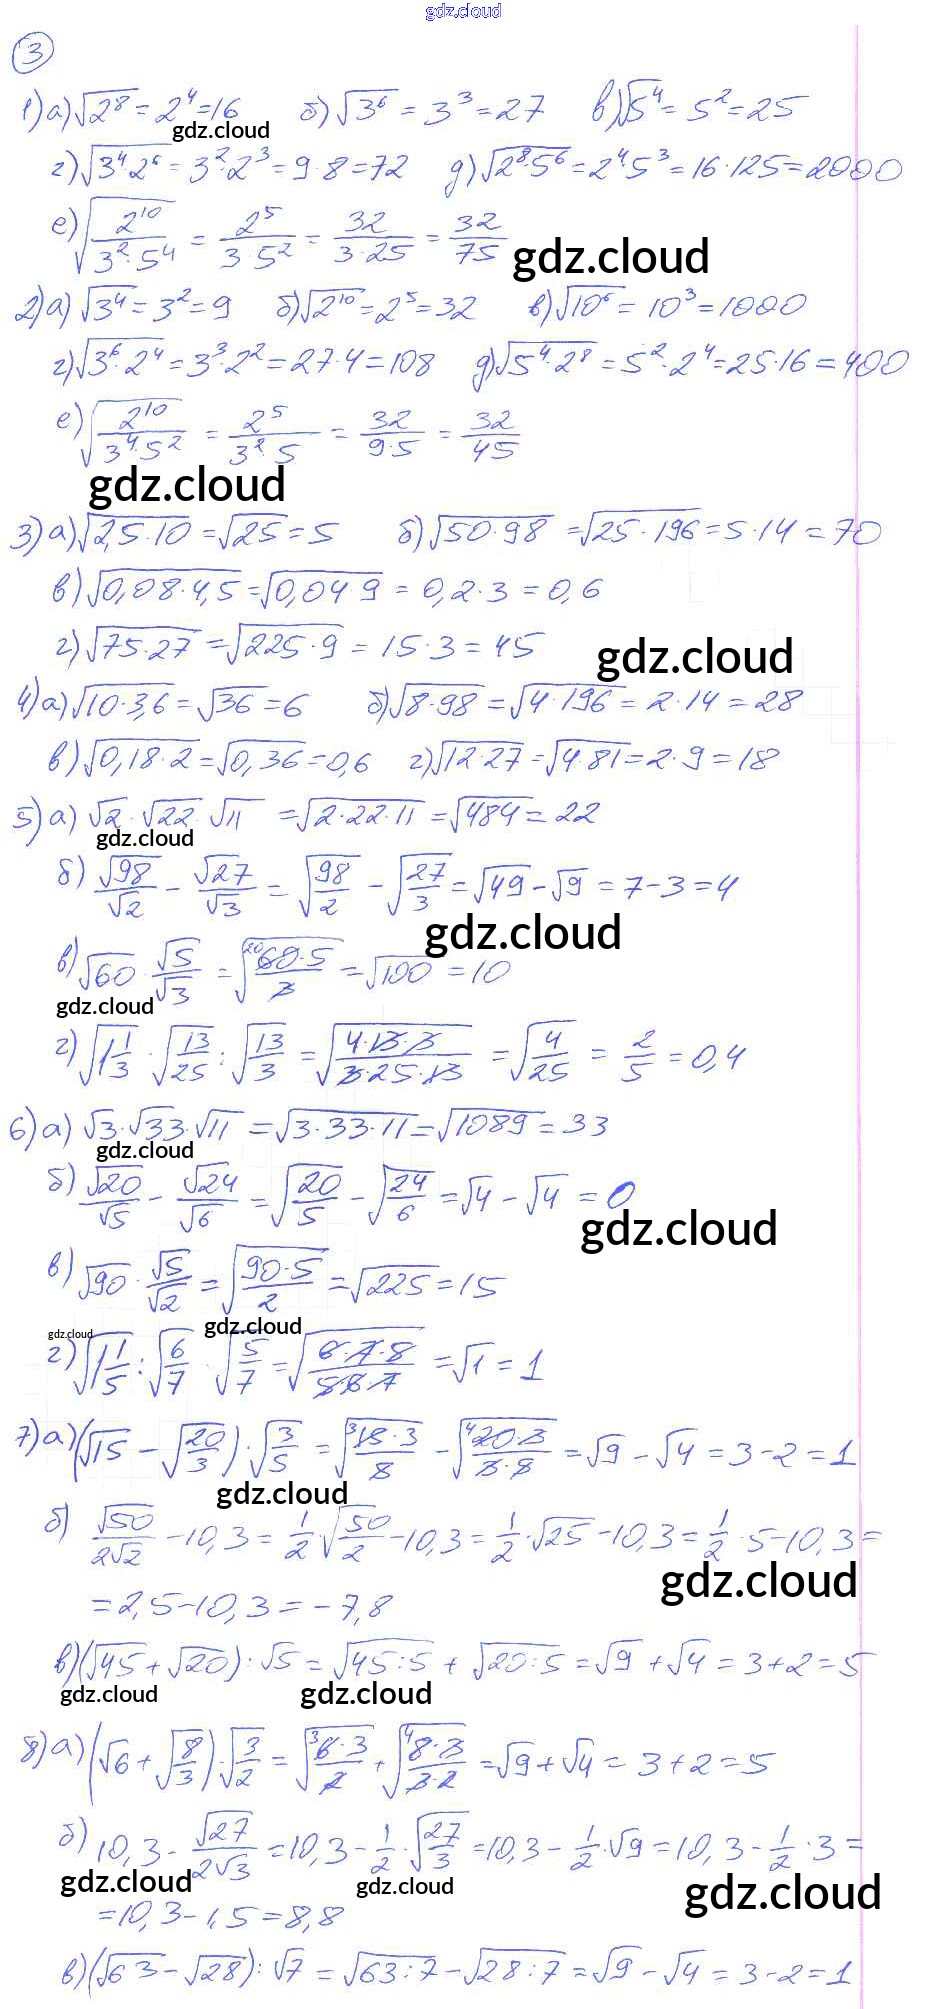 gdz.cloud
3
1) а) √2⁸ = 2⁴ = 16 б) √3⁶ = 3³ = 27 в) √5⁴ = 5² = 25
gdz.cloud
г) √3⁴·2⁶ = 3²·2³ = 9·8 = 72 д) √2⁸·5⁶ = 2⁴·5³ = 16·125 = 2000
е) √(2¹⁰/(3²·5⁴)) = 2⁵/(3·5²) = 32/(3·25) = 32/75
gdz.cloud
2) а) √3⁴ = 3² = 9 б) √2¹⁰ = 2⁵ = 32 в) √10⁶ = 10³ = 1000
г) √3⁶·2⁴ = 3³·2² = 27·4 = 108 д) √5⁴·2⁸ = 5²·2⁴ = 25·16 = 400
е) √(2¹⁰/(3⁴·5²)) = 2⁵/(3²·5) = 32/(9·5) = 32/45
gdz.cloud
3) а) √2,5·10 = √25 = 5 б) √50·98 = √25·196 = 5·14 = 70
в) √0,08·4,5 = √0,04·9 = 0,2·3 = 0,6
г) √75·27 = √225·9 = 15·3 = 45
gdz.cloud
4) а) √10·3,6 = √36 = 6 б) √8·98 = √4·196 = 2·14 = 28
в) √0,18·2 = √0,36 = 0,6 г) √12·27 = √4·81 = 2·9 = 18
5) а) √2·√22·√11 = √2·22·11 = √484 = 22
gdz.cloud
б) √98/√2 − √27/√3 = √(98/2) − √(27/3) = √49 − √9 = 7 − 3 = 4
gdz.cloud
в) √60·√5/√3 = √(²⁰60·5/3) = √100 = 10
gdz.cloud
г) √(1 1/3)·√(13/25):√(13/3) = √(4·13·3/(3·25·13)) = √(4/25) = 2/5 = 0,4
6) а) √3·√33·√11 = √3·33·11 = √1089 = 33
gdz.cloud
б) √20/√5 − √24/√6 = √(20/5) − √(24/6) = √4 − √4 = 0
gdz.cloud
в) √90·√5/√2 = √(90·5/2) = √225 = 15
gdz.cloud
gdz.cloud
г) √(1 1/5):√(6/7)·√(5/7) = √(6·7·5/(5·6·7)) = √1 = 1
7) а) (√15 − √(20/3))·√(3/5) = √(³15·3/5) − √(⁴20·3/(3·5)) = √9 − √4 = 3 − 2 = 1
gdz.cloud
б) √50/2√2 − 10,3 = 1/2·√(50/2) − 10,3 = 1/2·√25 − 10,3 = 1/2·5 − 10,3 =
gdz.cloud
= 2,5 − 10,3 = −7,8
в) (√45 + √20):√5 = √45:5 + √20:5 = √9 + √4 = 3 + 2 = 5
gdz.cloud gdz.cloud
8) а) (√6 + √(8/3))·√(3/2) = √(³6·3/2) + √(⁴8·3/(3·2)) = √9 + √4 = 3 + 2 = 5
б) 10,3 − √27/2√3 = 10,3 − 1/2·√(27/3) = 10,3 − 1/2·√9 = 10,3 − 1/2·3 =
gdz.cloud gdz.cloud gdz.cloud
= 10,3 − 1,5 = 8,8
в) (√63 − √28):√7 = √63:7 − √28:7 = √9 − √4 = 3 − 2 = 1